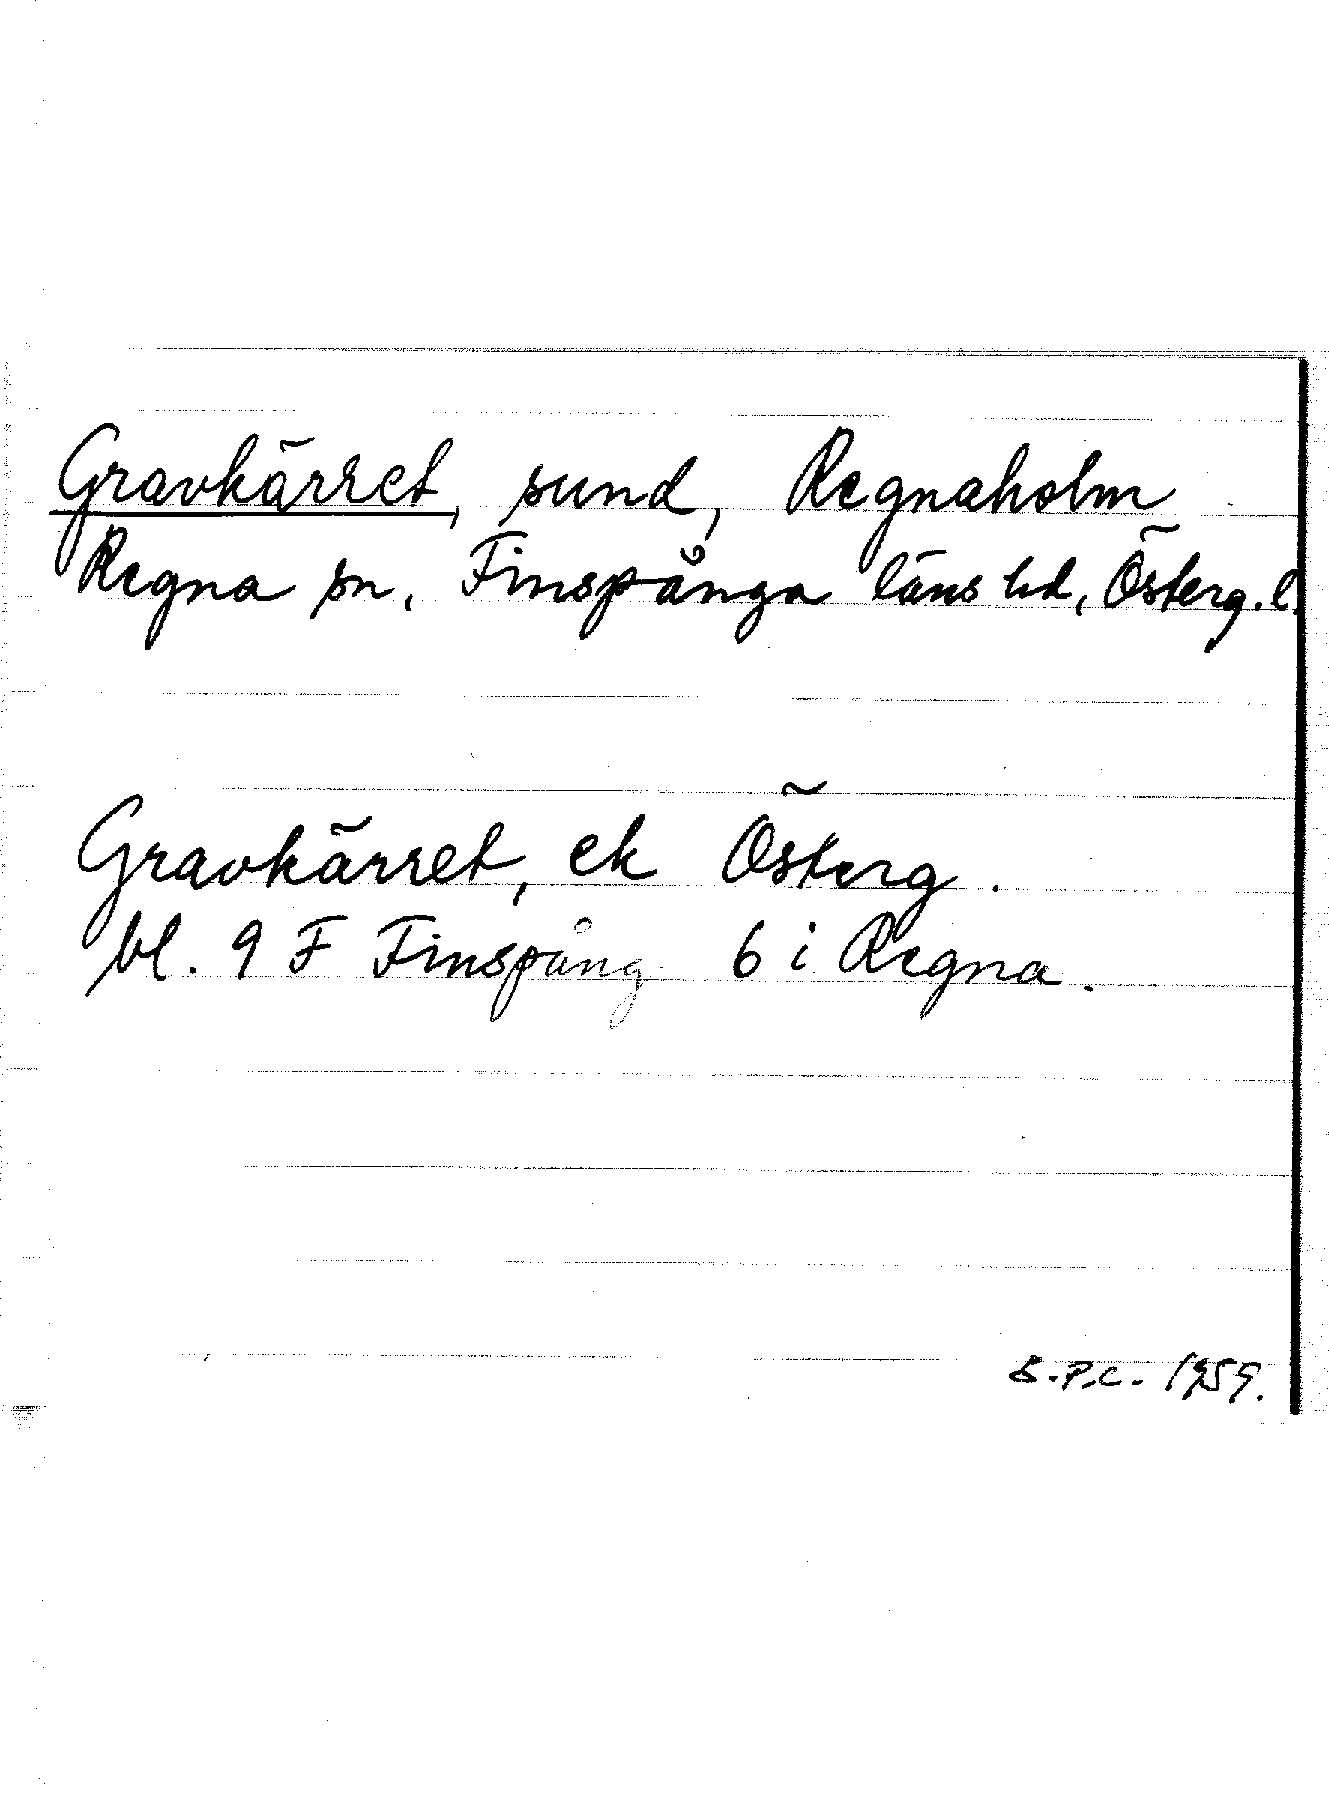 Gravkärret, sund, Regnaholm
Regna sn, Finspånga läns hd, Österg. l.
Gravkärret, ek Österg.
bl. 9 F Finspång 6 i Regna.
S.P.C. 1959.